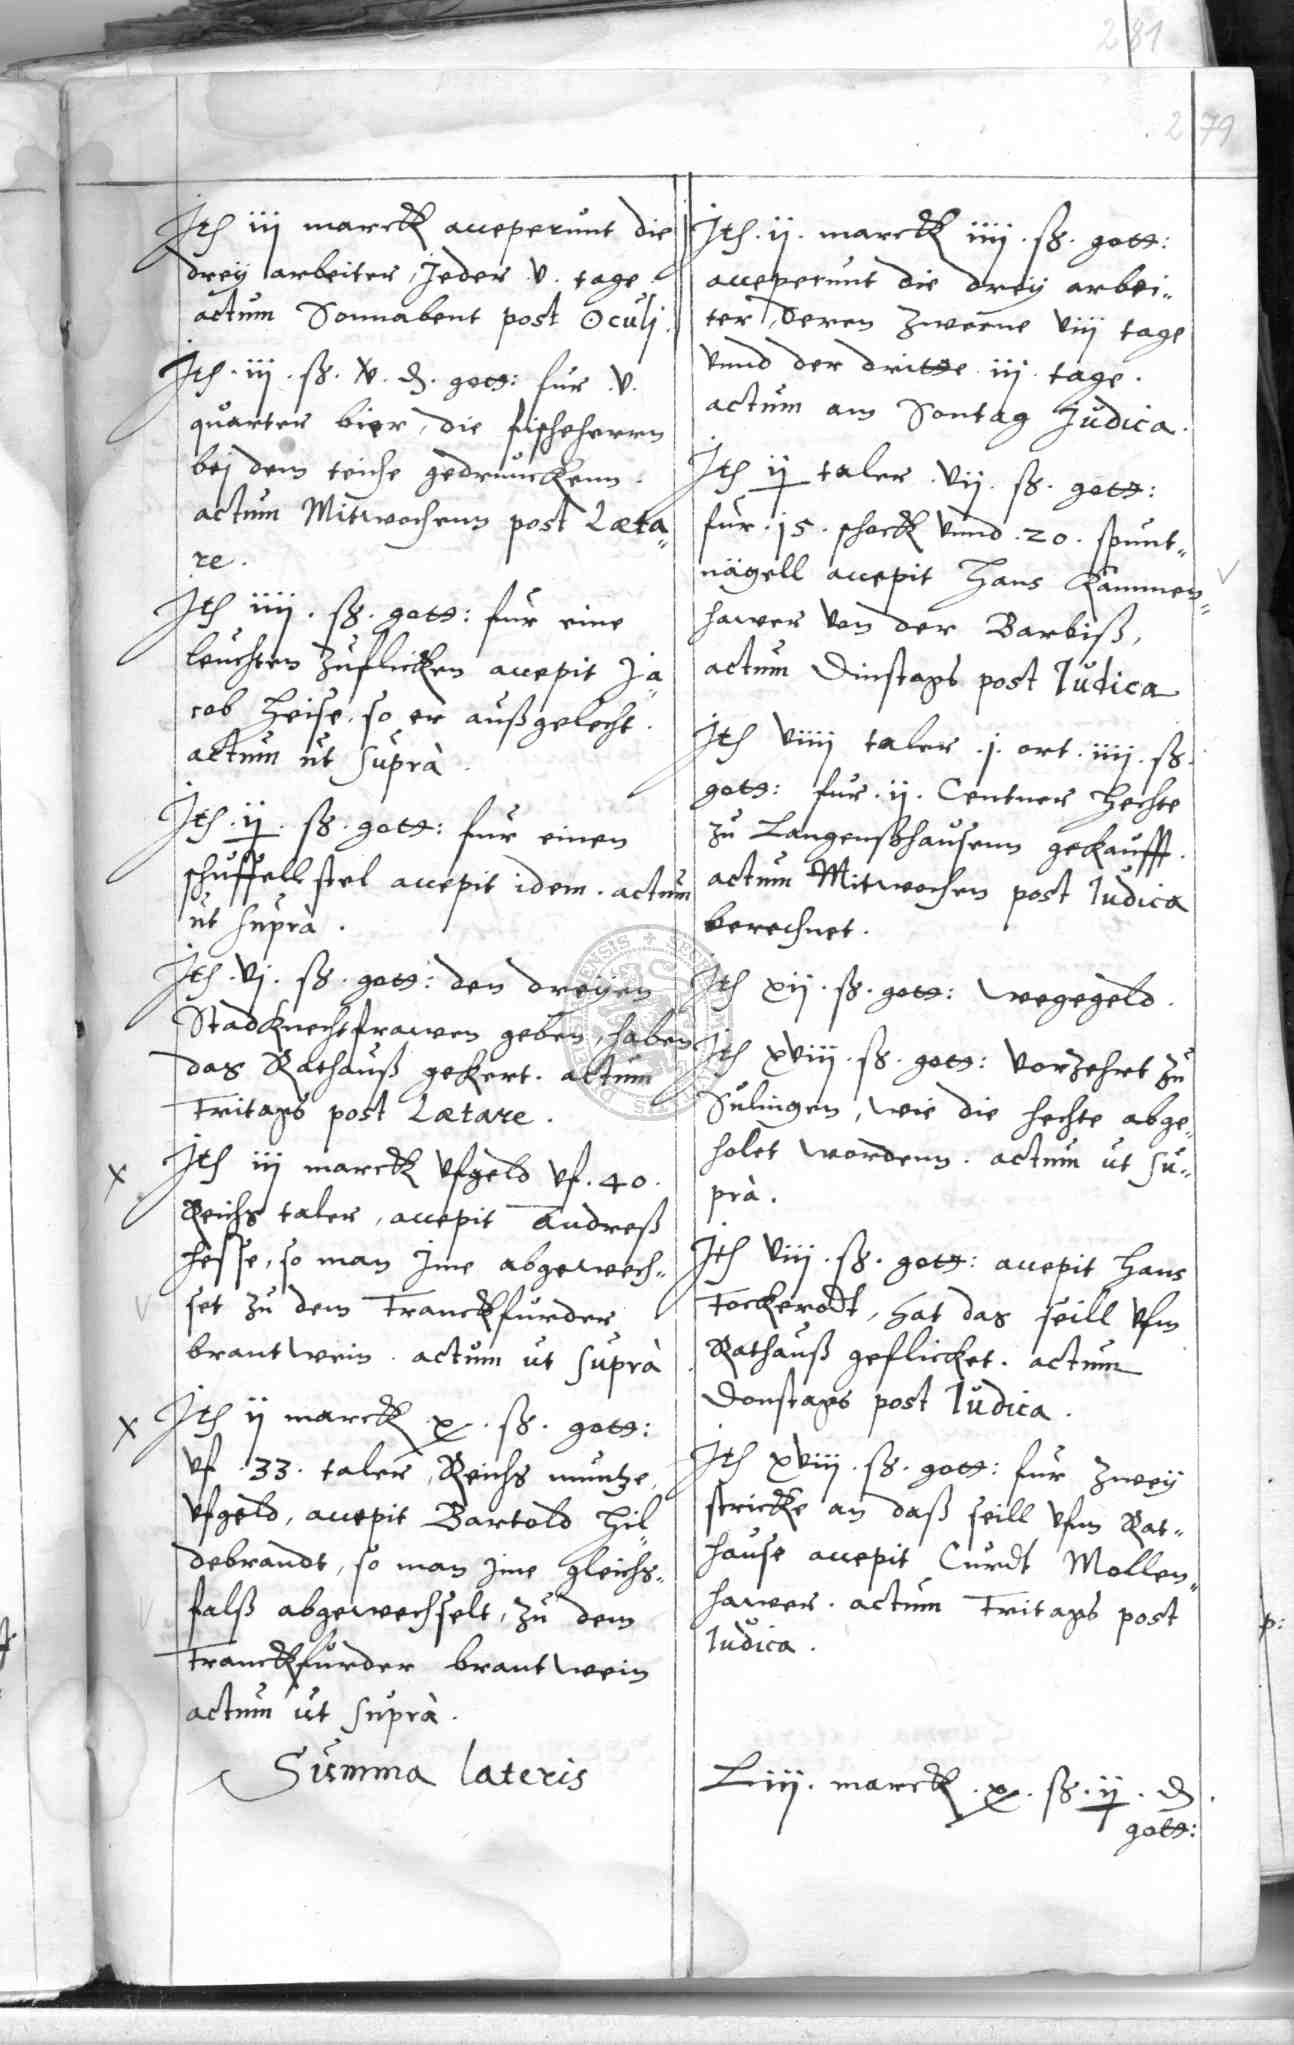 281
279
Ith iij marck acceperunt die
drey arbeiter, Jeder .v. tage
actum Sonnabent post Oculj.
Ith .iij. ß. v. d. gott: fur .v.
quarter bier, die fischeherrn
bej dem teiche gedrunckenn.
actum Mitwochenn post Læta„
re.
Ith iiij. ß. gott: fur eine
leuchten zuflicken accepit Ja„
cob Heise, so er außgelecht.
actum ut suprà.
Ith .ij. ß. gott: fur einen
schuffell stel accepit idem. actum
ut suprà.
Ith .vj. ß. gott: den dreyen
Stadknechtfrawen geben, haben
das Rathauß gekert. actum
Fritags post Lætare.
Ith iij marck vfgeld vf .40.
Reichs taler, accepit Andreß
Hesse, so man Jme abgewech„
set zu dem Franckfurder
brantwein. actum ut suprà
Ith ij marck x. ß. gott:
vf .33. taler, Reichs muntze,
vfgeld, accepit Bartold Hil„
debrandt, so man Jme gleichs„
falß abgewechselt, zu dem
Franckfurder brantwein
actum ut suprà.
Summa lateris
Ith .ij. marck iiij. ß. gott:
acceperunt die drey arbei„
ter, deren zweene viij tage
vnnd der dritte iij tage.
actum am Sontag Judica.
Ith ij taler .vij. ß. gott:
fur .15. schock vnnd .20. spunt„
nägell accepit Hans Kammen„
hawer von der Barbiß,
actum Dinstags post Judica
Ith viiij taler .j. ort. iiij. ß.
gott: fur .ij. Centner Hechte
zu Langenßhausenn gekaufft.
actum Mitwochen post Judica
berechnet.
Ith xij. ß. gott: wegegeld.
Ith xviij. ß. gott: vorzehrt zu
Sulingen, wie die hechte abge„
holet wordenn. actum ut su„
prà.
Ith viij. ß. gott: accepit Hans
Fockerodt, hat das seill vfm
Rathauß geflicket. actum
Donstags post Judica.
Ith xviij. ß. gott: fur zwey
stricke an daß seill vfm Rat„
hause accepit Curdt Mollen„
hawer. actum Fritags post
Judica.
Liij. marck .x. ß. ij. d.
gott: